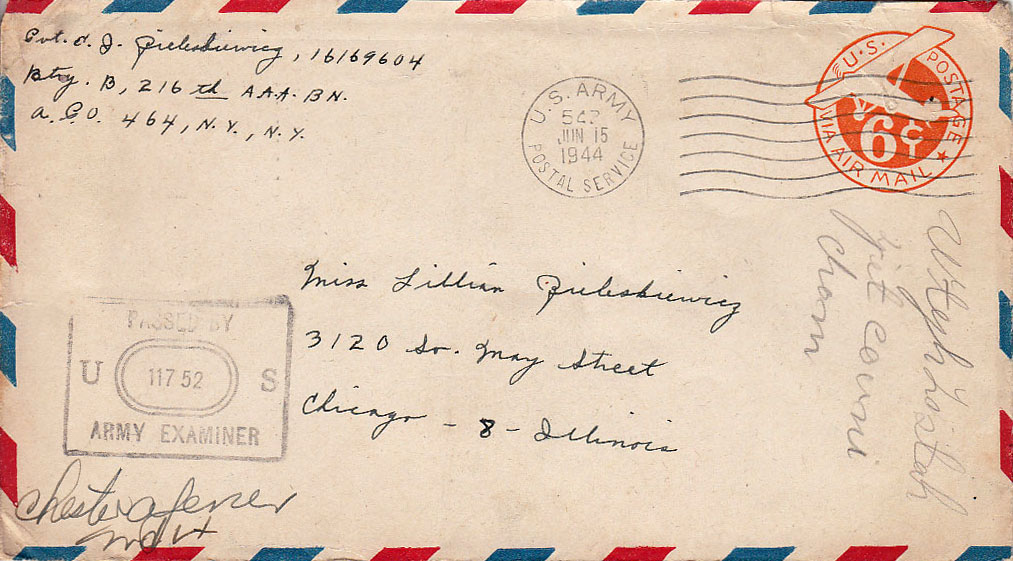 Pvt. A. J. Pieleskiewicz, 16169604
Btry. B, 216 th A.A.A. BN.
A.P.O. 464, N.Y., N.Y.
U.S. ARMY
JUN 15
1944
POSTAL SERVICE
U.S. POSTAGE
6¢
VIA AIR MAIL
Miss Lillian Pieleskiewicz
3120 So. May Street
Chicago - 8 - Illinois
PASSED BY
U 11752 S
ARMY EXAMINER
Chester